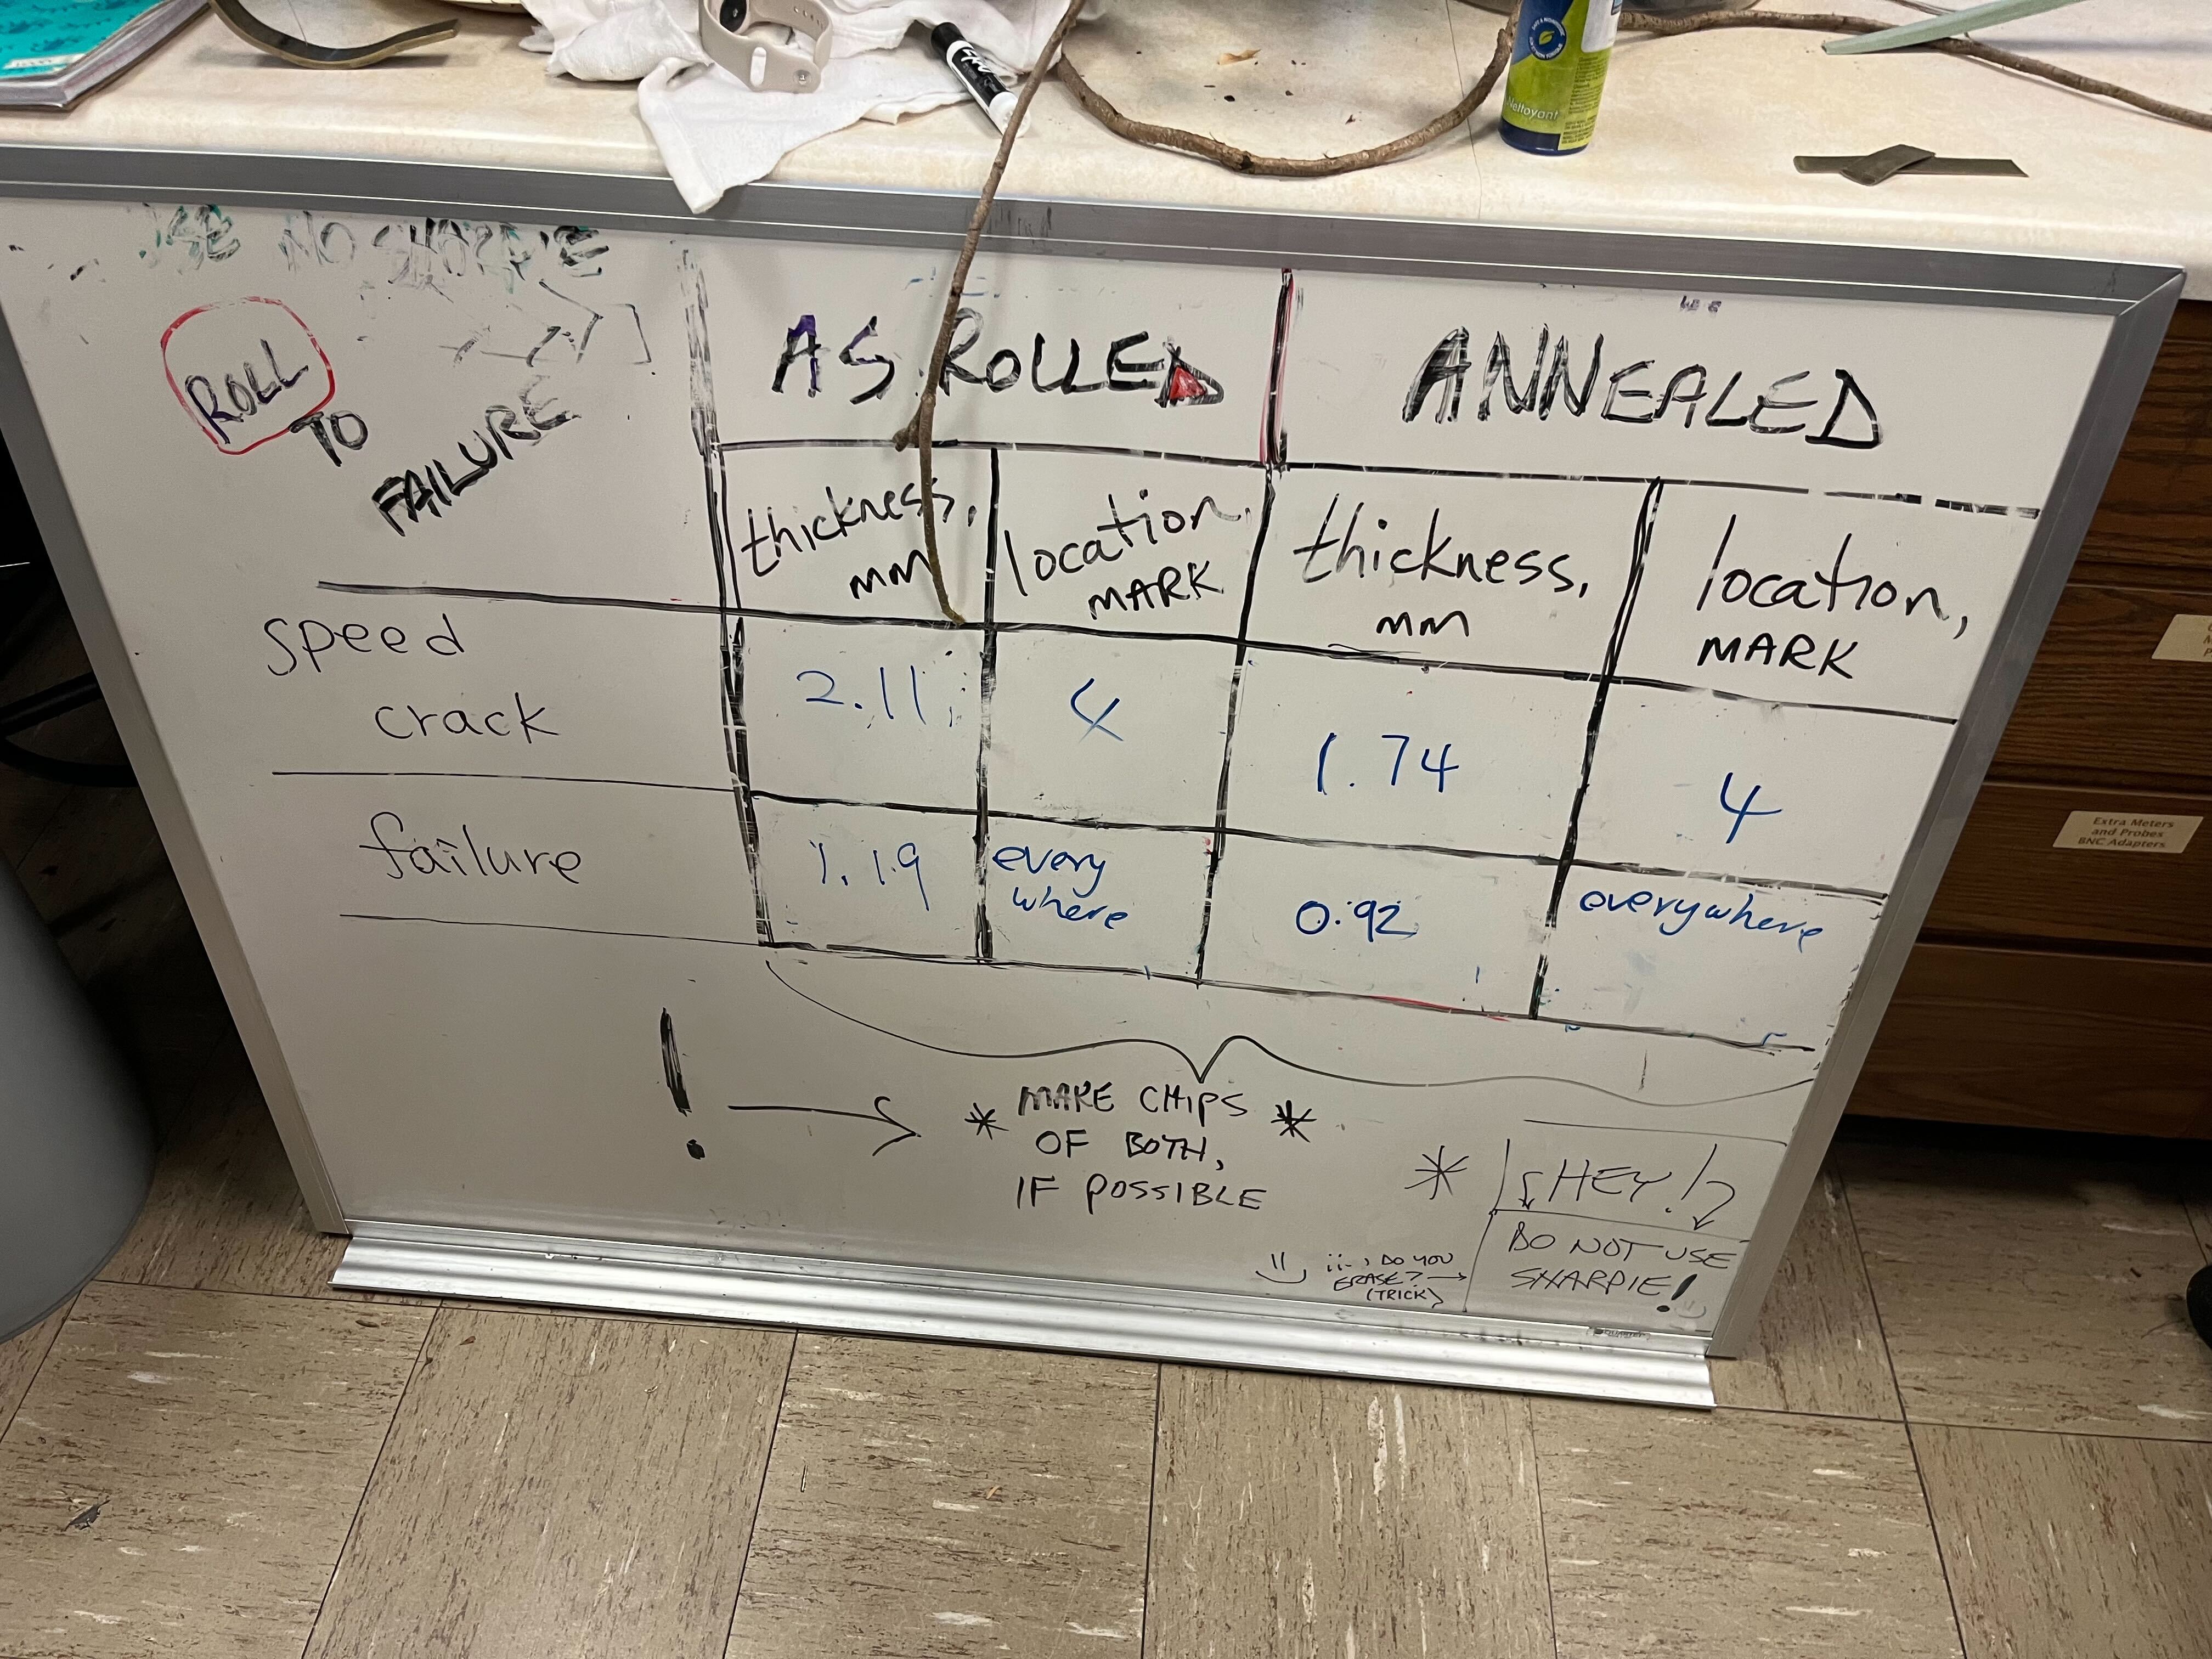 USE NO SHARPIE
ROLL
TO
FAILURE
AS ROLLED
ANNEALED
thickness,
mm
location,
MARK
thickness,
mm
location,
MARK
speed
crack
2.11
4
1.74
4
failure
1.19
every
where
0.92
everywhere
!
* MAKE CHIPS *
OF BOTH,
IF POSSIBLE
* HEY!
DO NOT USE
SHARPIE!
DO YOU
ERASE?
(TRICK)
Nettoyant
Extra Meters
and Probes
BNC Adapters